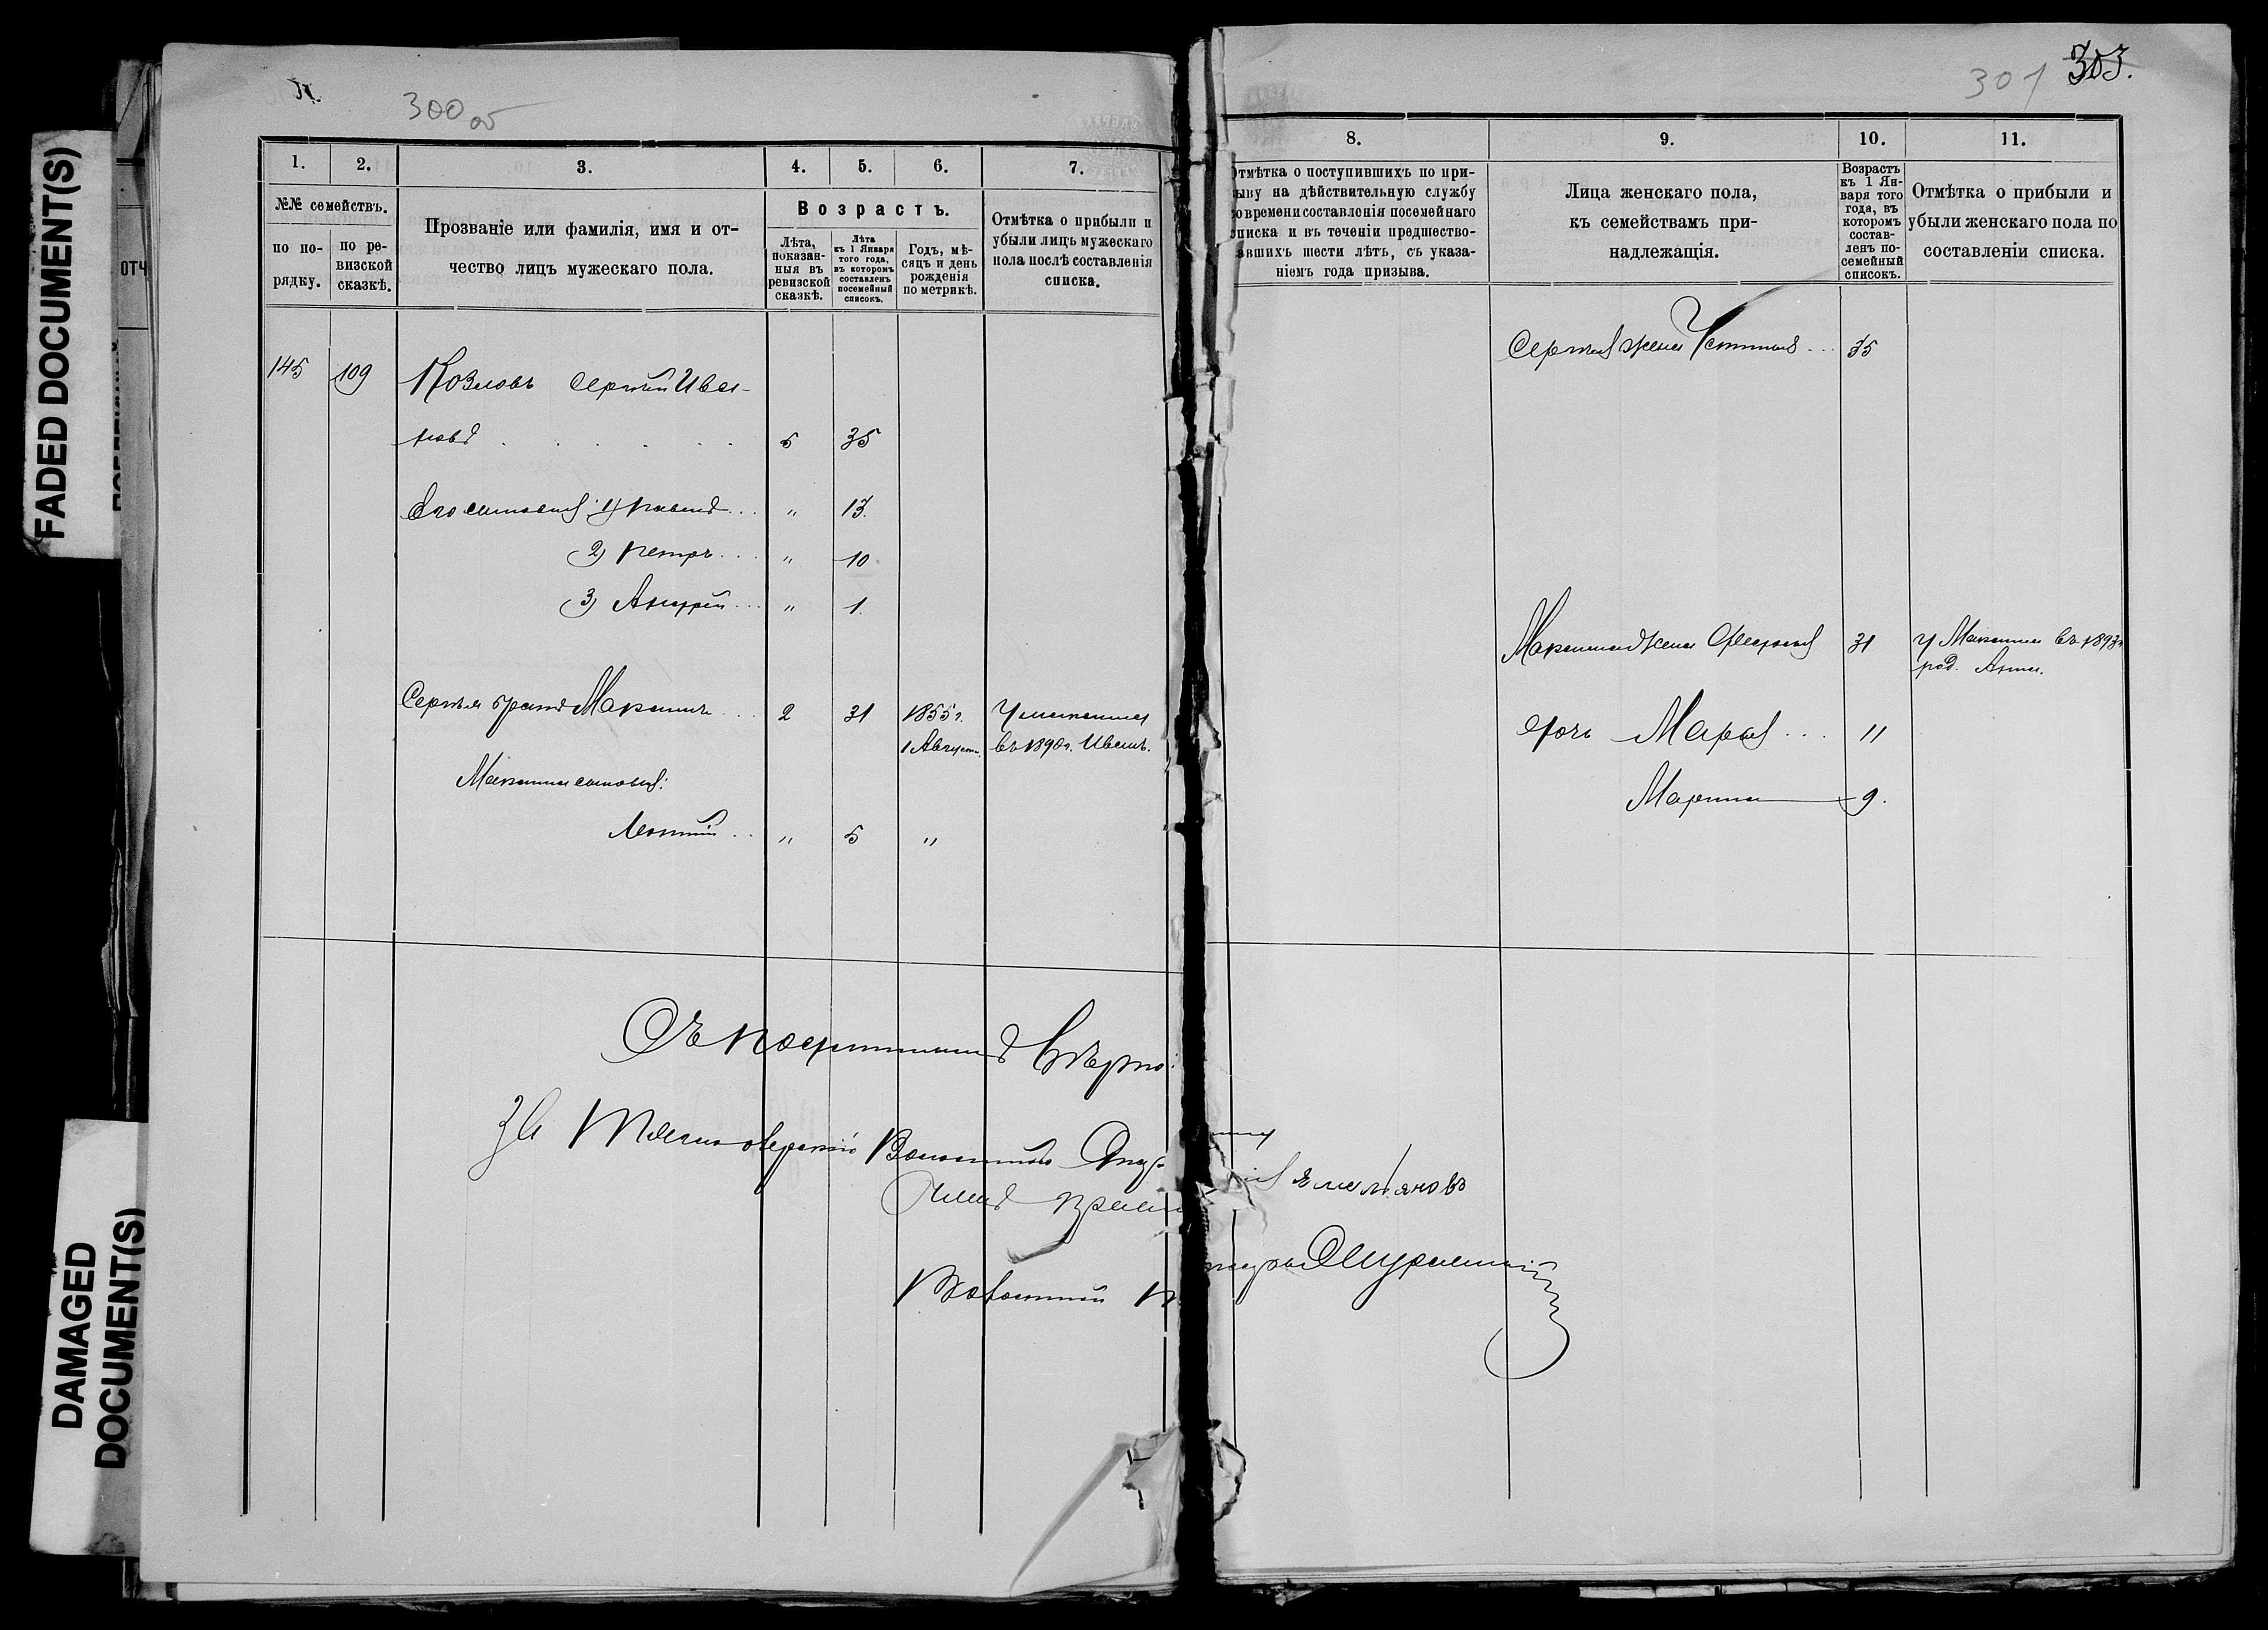 FADED DOCUMENT(S)
DAMAGED
DOCUMENT(S)
300 об
1.
2.
3.
4.
5.
6.
7.
№№ семействъ.
по по-
рядку.
по ре-
визской
сказкѣ.
Прозваніе или фамилія, имя и от-
чество лицъ мужескаго пола.
Возрастъ.
Лѣта,
показан-
ныя въ
ревизской
сказкѣ.
Лѣта
къ 1 Января
того года,
въ которомъ
составленъ
посемейный
списокъ.
Годъ, мѣ-
сяцъ и день
рожденія
по метрикѣ.
Отмѣтка о прибыли и
убыли лицъ мужескаго
пола послѣ составленія
списка.
145 109 Козловъ Сергѣй Ива-
новъ 5 35
Его сыновья: 1) Павелъ " 13.
2) Петръ " 10
3) Андрей " 1.
Сергѣя братъ Максимъ 2 31 1855 г. У Максима
1 Август. въ 1890 г. Иванъ.
Максима сыновья:
Леонтій " 5 "
Съ подлиннымъ вѣрно:
За Волостного
Волостной
301 303.
8.
9.
10.
11.
Отмѣтка о поступившихъ по при-
зыву на дѣйствительную службу
со времени составленія посемейнаго
списка и въ теченіи предшество-
вавшихъ шести лѣтъ, съ указа-
ніемъ года призыва.
Лица женскаго пола,
къ семействамъ при-
надлежащія.
Возрастъ
къ 1 Ян-
варя того
года, въ
которомъ
состав-
ленъ по-
семейный
списокъ.
Отмѣтка о прибыли и
убыли женскаго пола по
составленіи списка.
Сергѣя жена Устинья 35
Максима жена 31 У Максима въ 1893 г.
род. Анна.
дочь Марья 11
Марина 9.
Емельяновъ